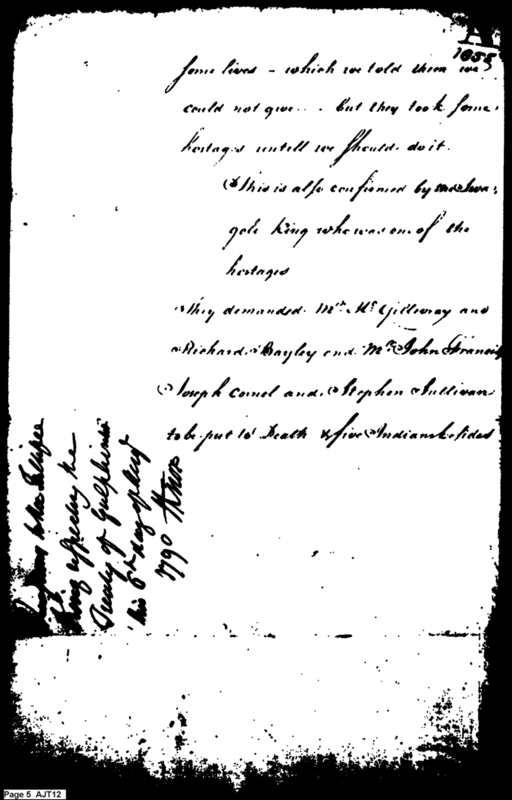 1055
some lives - which we told them we
could not give... but they took some
hostages untill we should do it.
This is also confirmed by
King who was one of the
hostages
They demanded Mr. McGillivray and
Richard Bayley and Mr. John Francis
Joseph Cornel and Stephen Sullivan
to be put to Death & five Indians besides
King respecting the
Treaty of
this 6th day of
1790 Knox
Page 5 AJT12